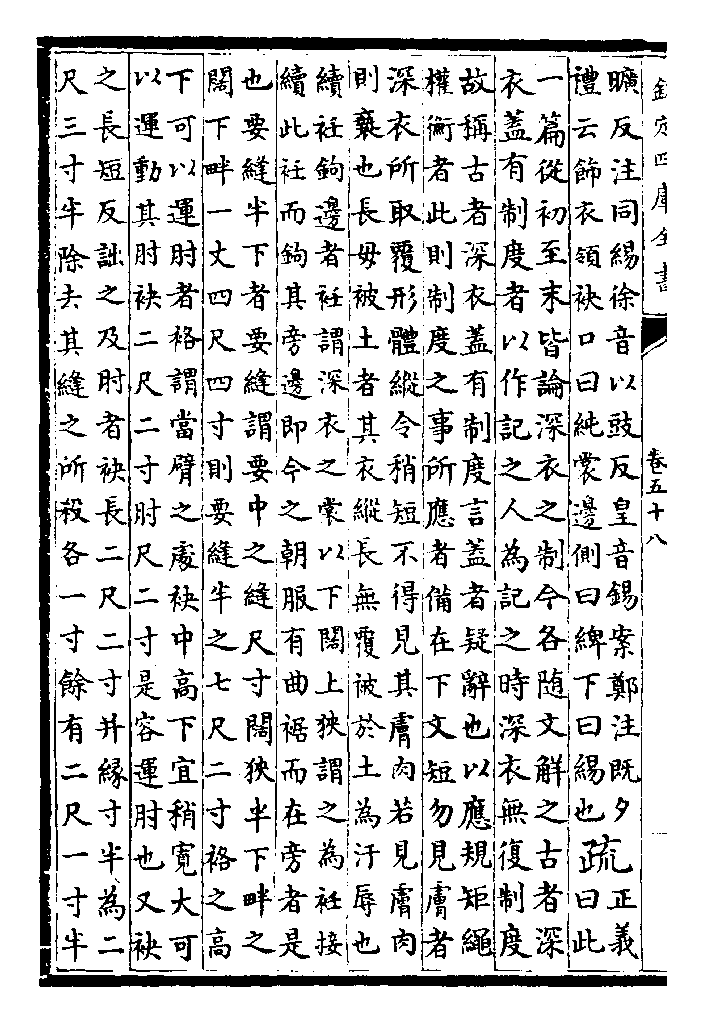 欽定四庫全書
卷五十八
曠反注同緆徐音以豉反皇音錫案鄭注既夕
禮云飾衣領袂口曰純裳邊側曰綼下曰緆也
疏
正義
曰此
一篇從初至末皆論深衣之制今各隨文解之古者深
衣蓋有制度者以作記之人為記之時深衣無復制度
故稱古者深衣蓋有制度言蓋者疑辭也以應規矩繩
權衡者此則制度之事所應者備在下文短勿見膚者
深衣所取覆形體縱令稍短不得見其膚肉若見膚肉
則褻也長毋被土者其衣縱長無覆被於土為汙辱也
續衽鉤邊者衽謂深衣之裳以下闊上狹謂之為衽接
續此衽而鉤其旁邊即今之朝服有曲裾而在旁者是
也要縫半下者要縫謂要中之縫尺寸闊狹半下畔之
闊下畔一丈四尺四寸則要縫半之七尺二寸袼之高
下可以運肘者袼謂當臂之處袂中高下宜稍寬大可
以運動其肘袂二尺二寸肘尺二寸是容運肘也又袂
之長短反詘之及肘者袂長二尺二寸并緣寸半為二
尺三寸半除去其縫之所殺各一寸餘有二尺一寸半